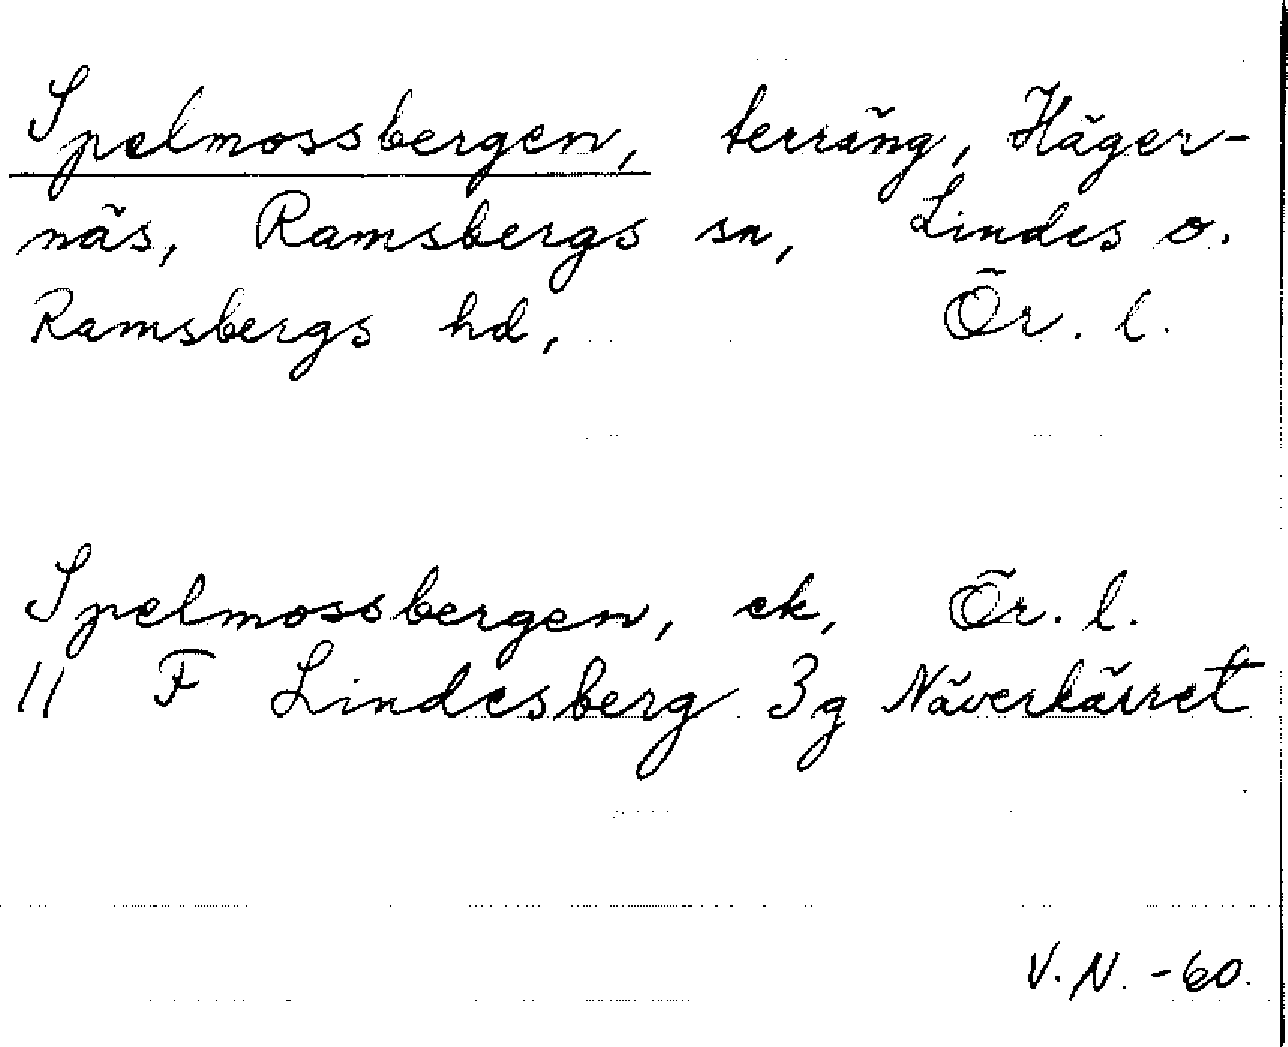 Spelmossbergen, terräng, Häger-
näs, Ramsbergs sn, Lindes o.
Ramsbergs hd, Ör. l.
Spelmossbergen, ek, Ör. l.
11 F Lindesberg 3g Näverkärret
V.N. -60.